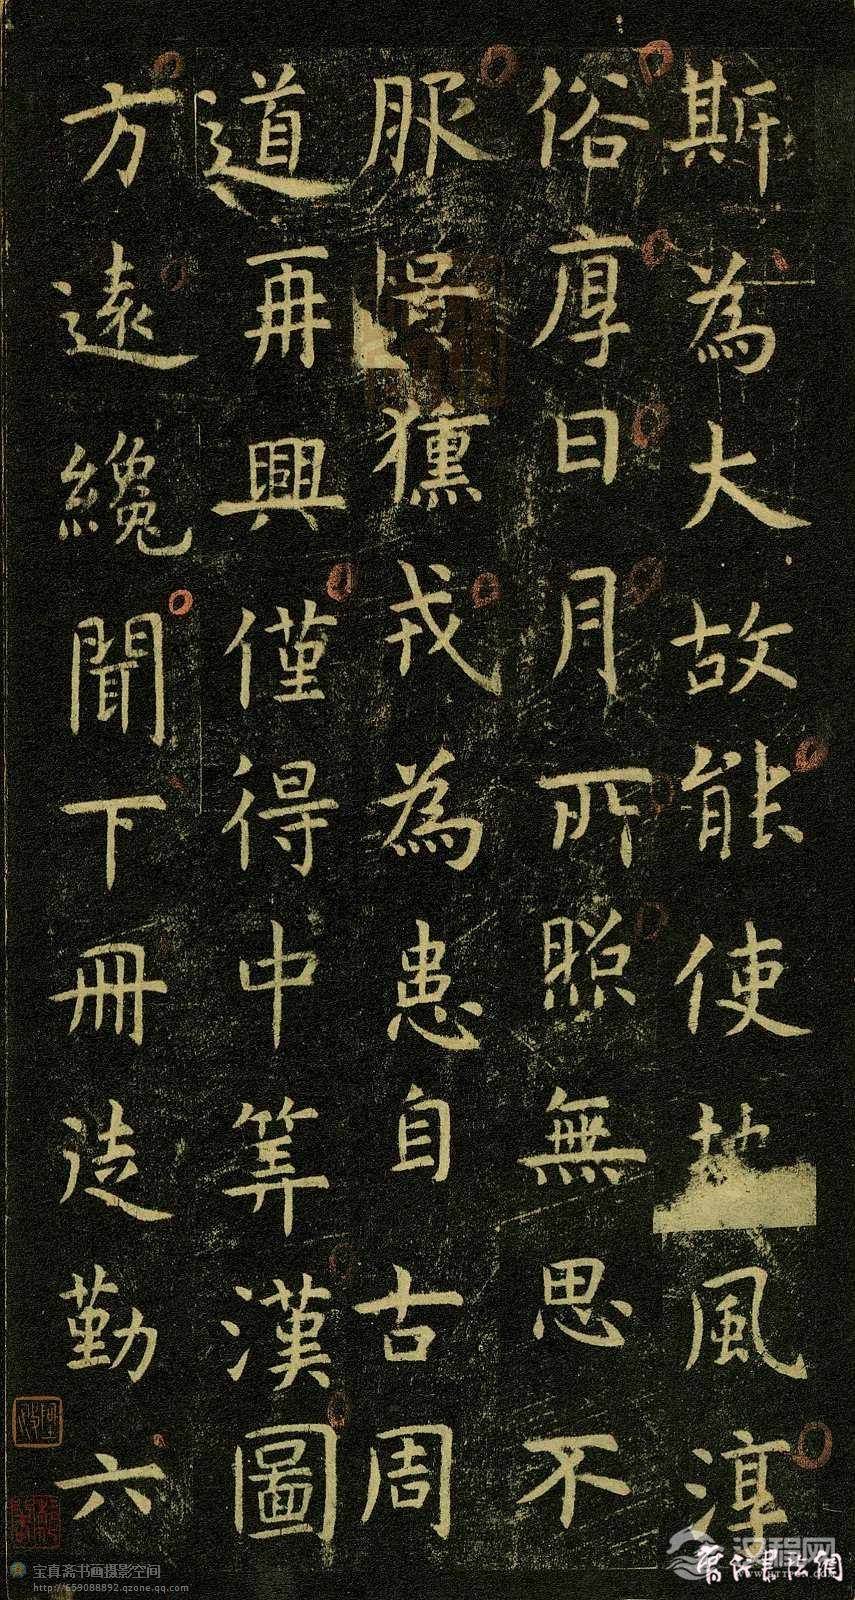 斯為大故能使地風淳
俗厚日月所照無思不
服粵獯戎為患自古周
道再興僅得中筭漢圖
方遠纔聞下冊徒勤六
宝真斋书画摄影空间
http://659088892.qzone.qq.com
汉程网